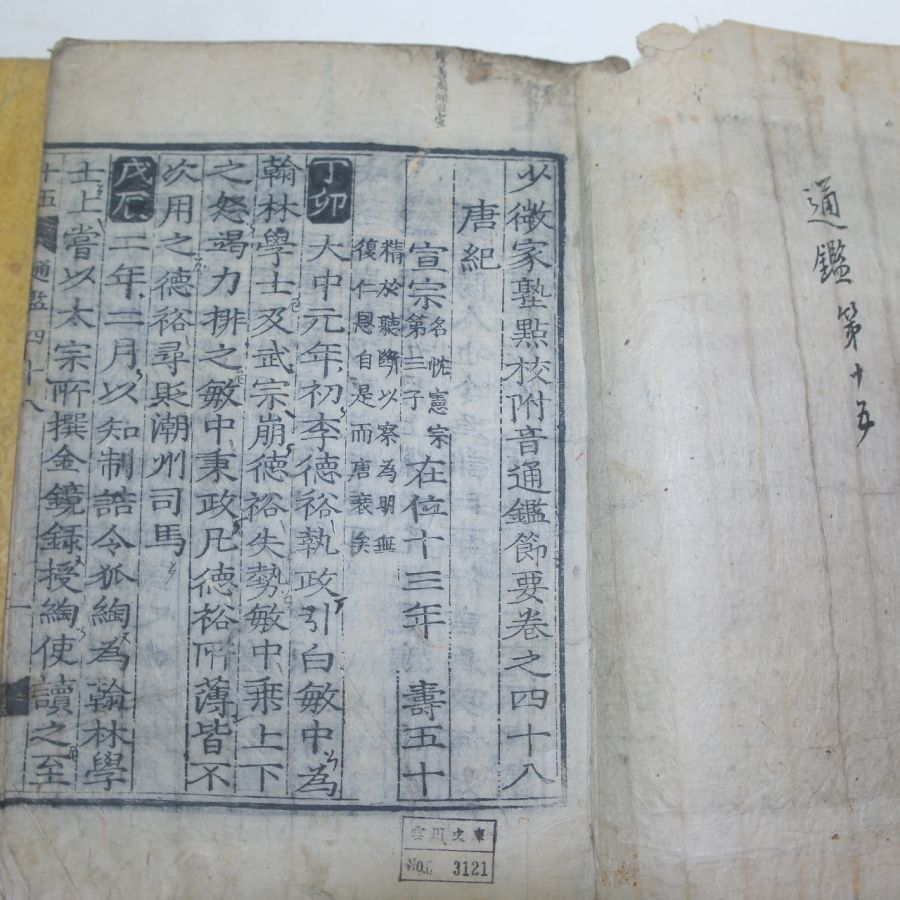 通鑑第十五
少微家塾點校附音通鑑節要卷之四十八
唐紀
宣宗名忱憲宗第三子在位十三年 壽五十
精於聽斷以察為明無
復仁恩自是而唐衰矣
丁卯大中元年初李德裕執政引白敏中為
翰林學士及武宗崩德裕失勢敏中乗上下
之怒竭力排之敏中秉政凡德裕所薄皆不
次用之德裕尋貶潮州司馬
戊辰二年二月以知制誥令狐綯為翰林學
士上嘗以太宗所撰金鏡録授綯使讀之至
十五 通鑑四十八
雲川文庫
No. 3121